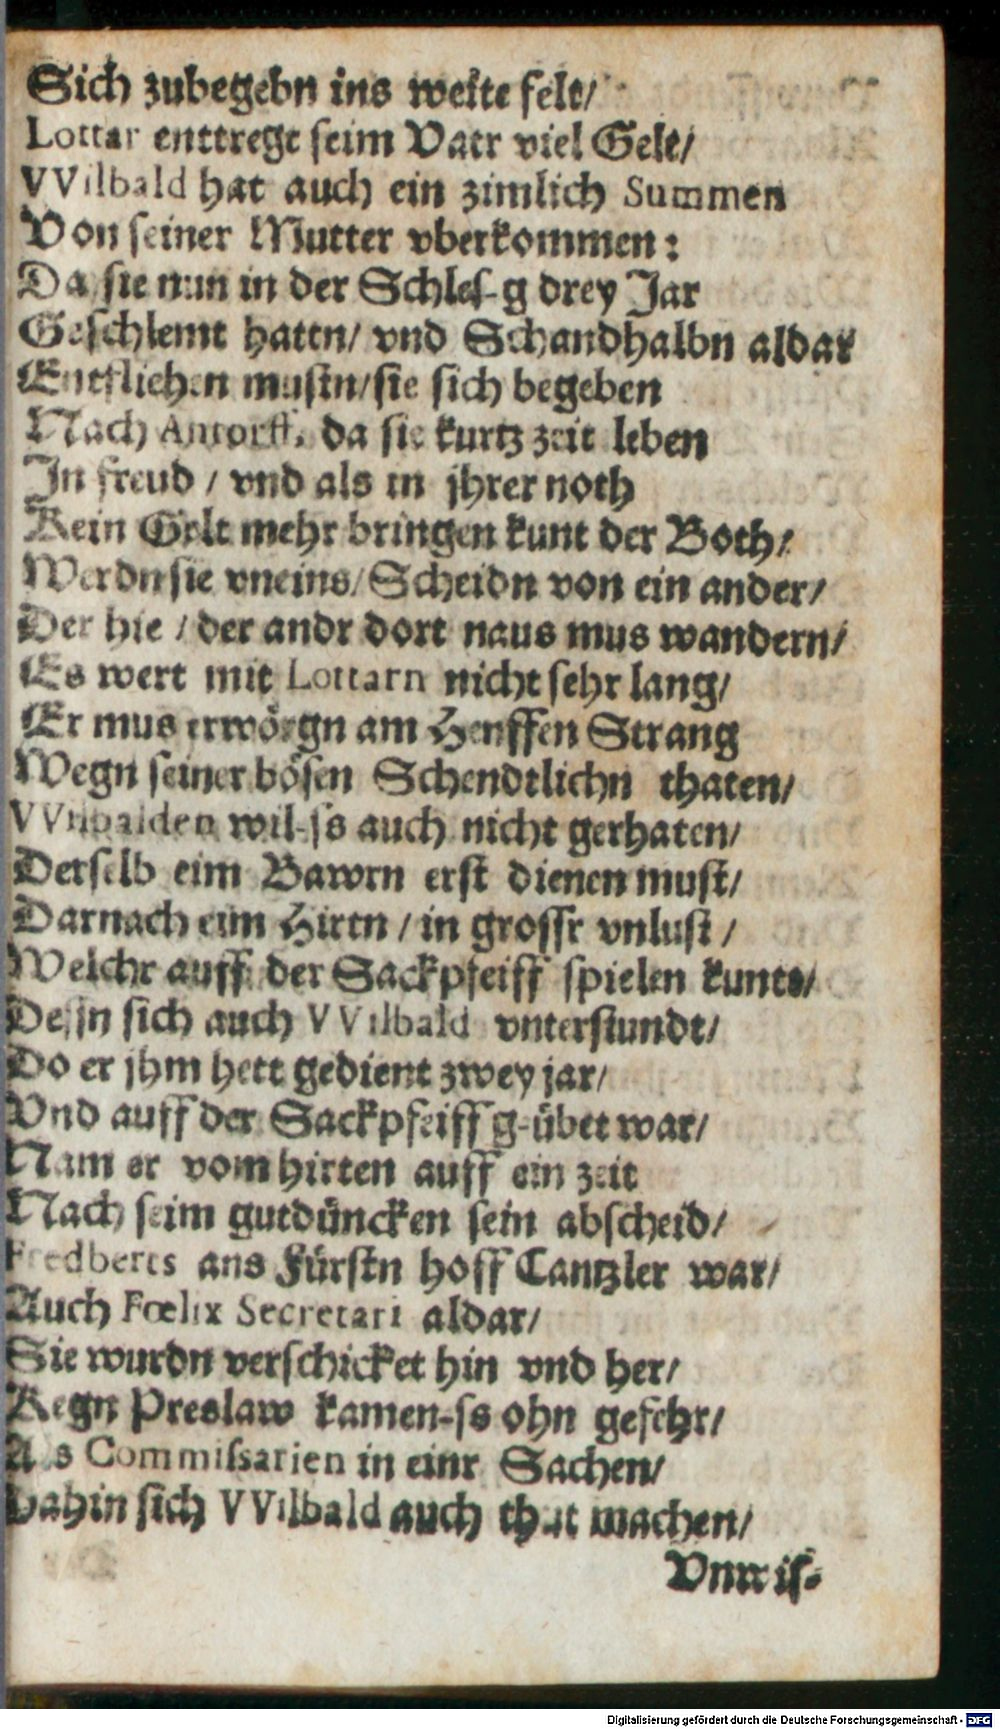 Sich zubegebn ins weite felt/
Lottar enttregt seim Vatr viel Gelt/
VVilbald hat auch ein zimlich Summen
Von seiner Mutter vberkommen:
Da sie nun in der Schles-g drey Jar
Geschlemt hattn/ vnd Schandhalbn aldar
Entfliehen mustn/sie sich begeben
Nach Antorff, da sie kurtz zeit leben
In freud / vnd als in jhrer noth
Kein Gelt mehr bringen kunt der Both/
Werdn sie vneins/Scheidn von ein ander/
Der hie / der andr dort naus mus wandern/
Es wert mit Lottarn nicht sehr lang/
Er mus erwörgn am Henffen Strang
Wegn seiner bösen Schendtlichn thaten/
VVilbalden wil-ss auch nicht gerhaten/
Derselb eim Bawrn erst dienen must/
Darnach eim Hirtn / in grossr vnlust /
Welchr auff der Sackpfeiff spielen kunte/
Dessn sich auch VVilbald vnterstundt/
Do er jhm hett gedient zwey jar/
Vnd auff der Sackpfeiff g-übet war/
Nam er vom hirten auff ein zeit
Nach seim gutdüncken sein abscheid/
Fredberts ans Fürstn hoff Cantzler war/
Auch Fœlix Secretari aldar/
Sie wurdn verschicket hin vnd her/
Kegn Preslaw kamen-ss ohn gefehr/
Als Commissarien in einr Sachen/
Dahin sich VVilbald auch that machen/
Vnwis-
Digitalisierung gefördert durch die Deutsche Forschungsgemeinschaft - DFG